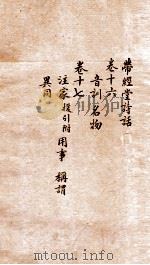 帶經堂詩話
卷十六
音訓 名物
卷十七
注家 援引附 用事 稱謂
異同
www.modtu.com